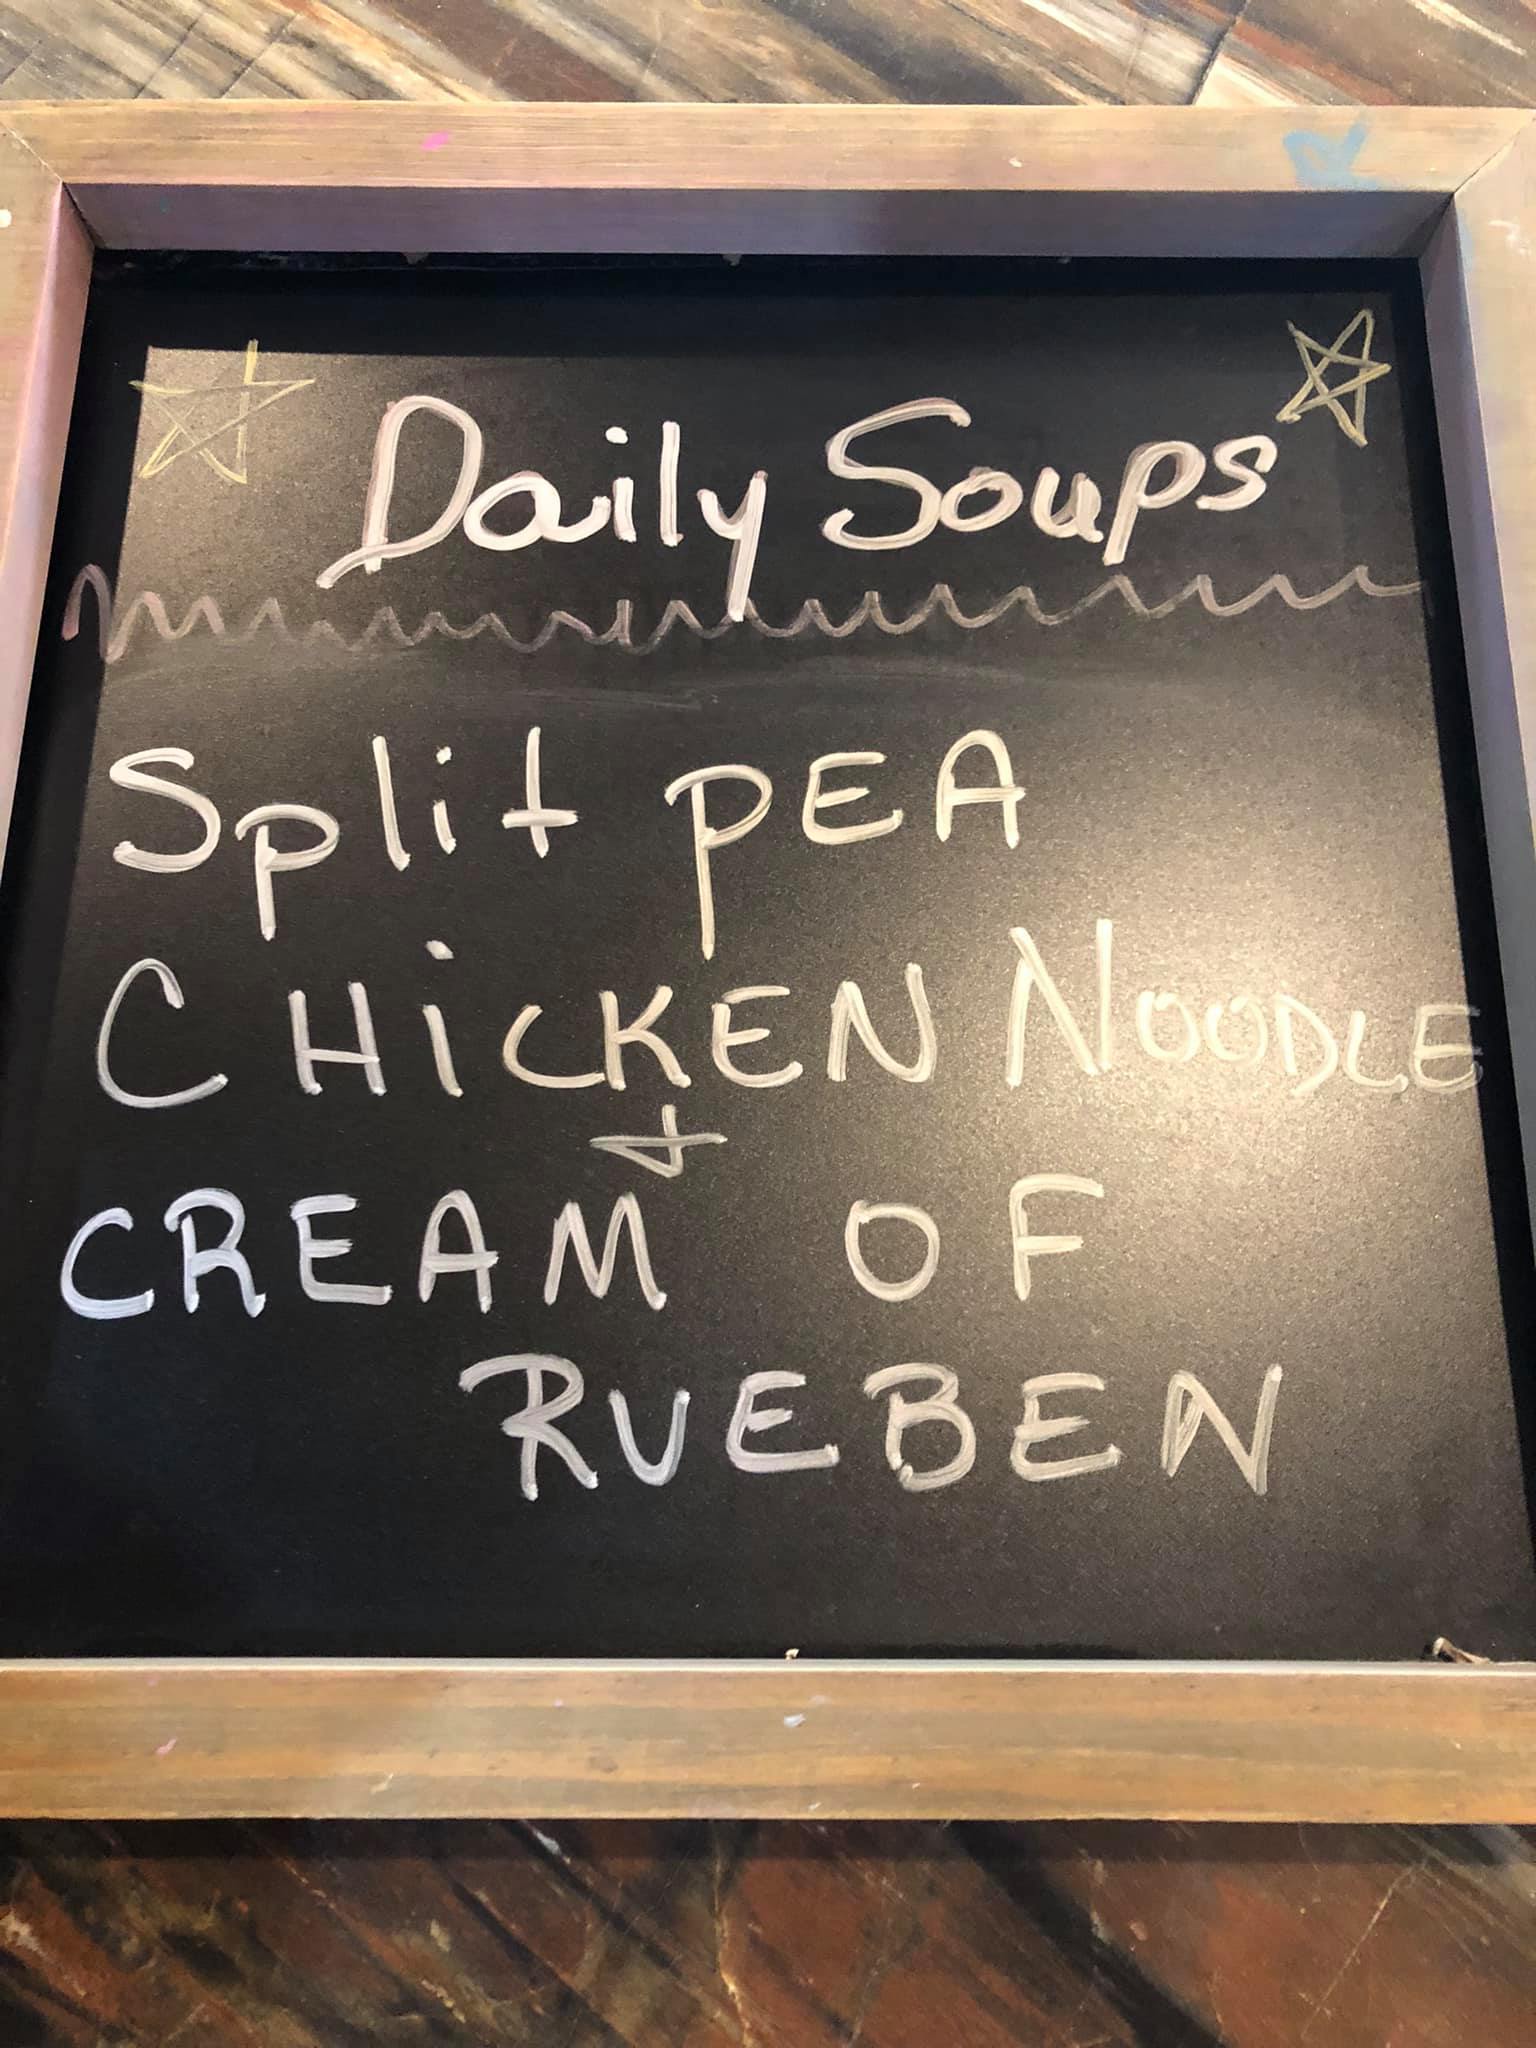 Daily Soups
Split PEA
CHiCKEN NOODLE
+
CREAM OF
RUEBEN